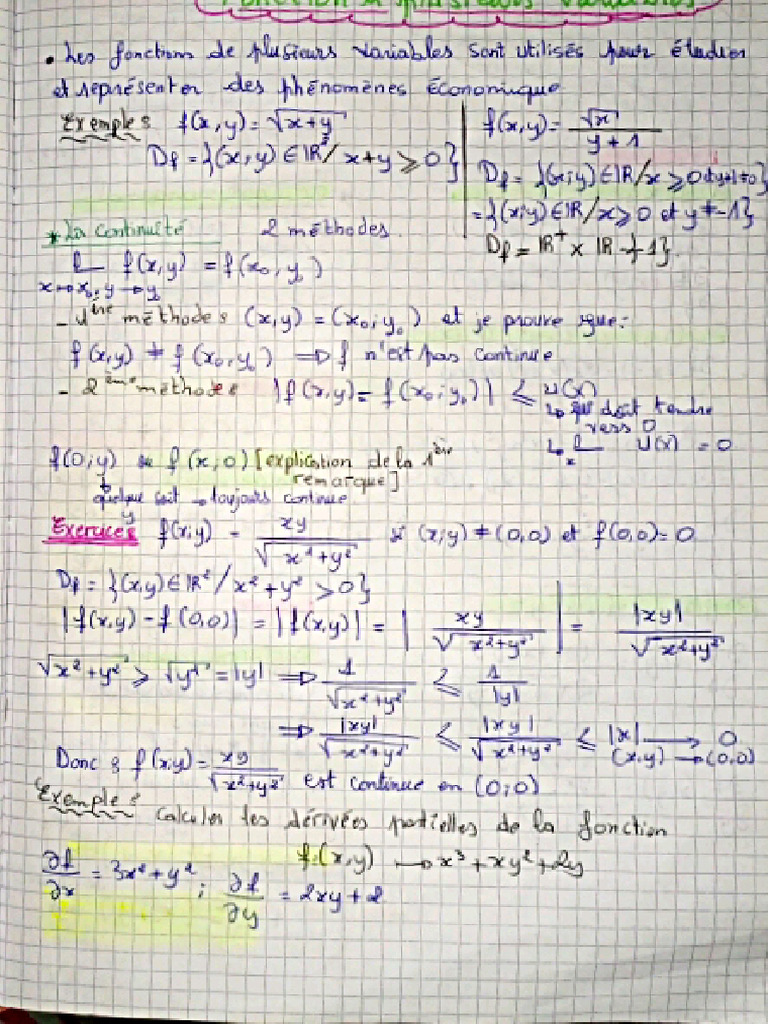 Fonction à plusieurs variables
• Les fonctions de plusieurs variables sont utilisés pour étudier
et représenter des phénomènes économique
Exemples f(x,y) = √x+y
Df = {(x,y) ∈ IR² / x+y ⩾ 0}
f(x,y) = √x / y+1
Df = {(x;y) ∈ IR / x ⩾ 0 et y+1≠0}
= {(x;y) ∈ IR / x ⩾ 0 et y ≠ -1}
Df = IR⁺ × IR - {-1}.
* La continuité 2 méthodes.
lim f(x,y) = f(x₀, y₀)
x→x₀, y→y₀
- 1ère méthodes (x,y) = (x₀; y₀) et je prouve que:
f(x,y) ≠ f(x₀, y₀) ⇒ f n'est pas continue
- 2ème méthodes |f(x,y) - f(x₀; y₀)| ⩽ u(x)
↳ qui doit tendre
vers 0
↳ lim u(x) = 0
x
f(0;y) ou f(x;0) [explication de la 1ère
remarque]
quelque soit y → toujours continue
Exercices f(x;y) = xy / √x²+y² si (x;y) ≠ (0,0) et f(0,0) = 0
Df = {(x,y) ∈ IR² / x²+y² > 0}
|f(x,y) - f(0,0)| = |f(x,y)| = | xy / √x²+y² | = |xy| / √x²+y²
√x²+y² ⩾ √y² = |y| ⇒ 1 / √x²+y² ⩽ 1 / |y|
⇒ |xy| / √x²+y² ⩽ |xy| / √x²+y² ⩽ |x| → 0
(x,y) → (0,0)
Donc : f(x;y) = xy / √x²+y² est continue en (0;0)
Exemple : Calculer les dérivées partielles de la fonction
f:(x,y) → x³+xy²+2y
∂f/∂x = 3x²+y² ; ∂f/∂y = 2xy+2